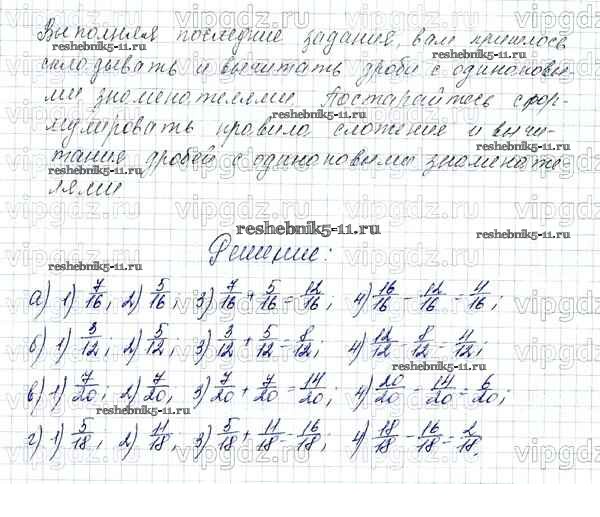 Выполняя последние задания, вам пришлось
складывать и вычитать дроби с одинаковы-
ми знаменателями. Постарайтесь сфор-
мулировать правила сложение и вычи-
тания дробей с одинаковыми знамена те-
лями
Решение:
а) 1) 7/16; 2) 5/16; 3) 7/16 + 5/16 = 12/16; 4) 16/16 - 12/16 = 4/16;
б) 1) 3/12; 2) 5/12; 3) 3/12 + 5/12 = 8/12; 4) 12/12 - 8/12 = 4/12;
в) 1) 7/20; 2) 7/20; 3) 7/20 + 7/20 = 14/20; 4) 20/20 - 14/20 = 6/20;
г) 1) 5/18; 2) 11/18, 3) 5/18 + 11/18 = 16/18; 4) 18/18 - 16/18 = 2/18.
vipgdz.ru
reshebnik5-11.ru